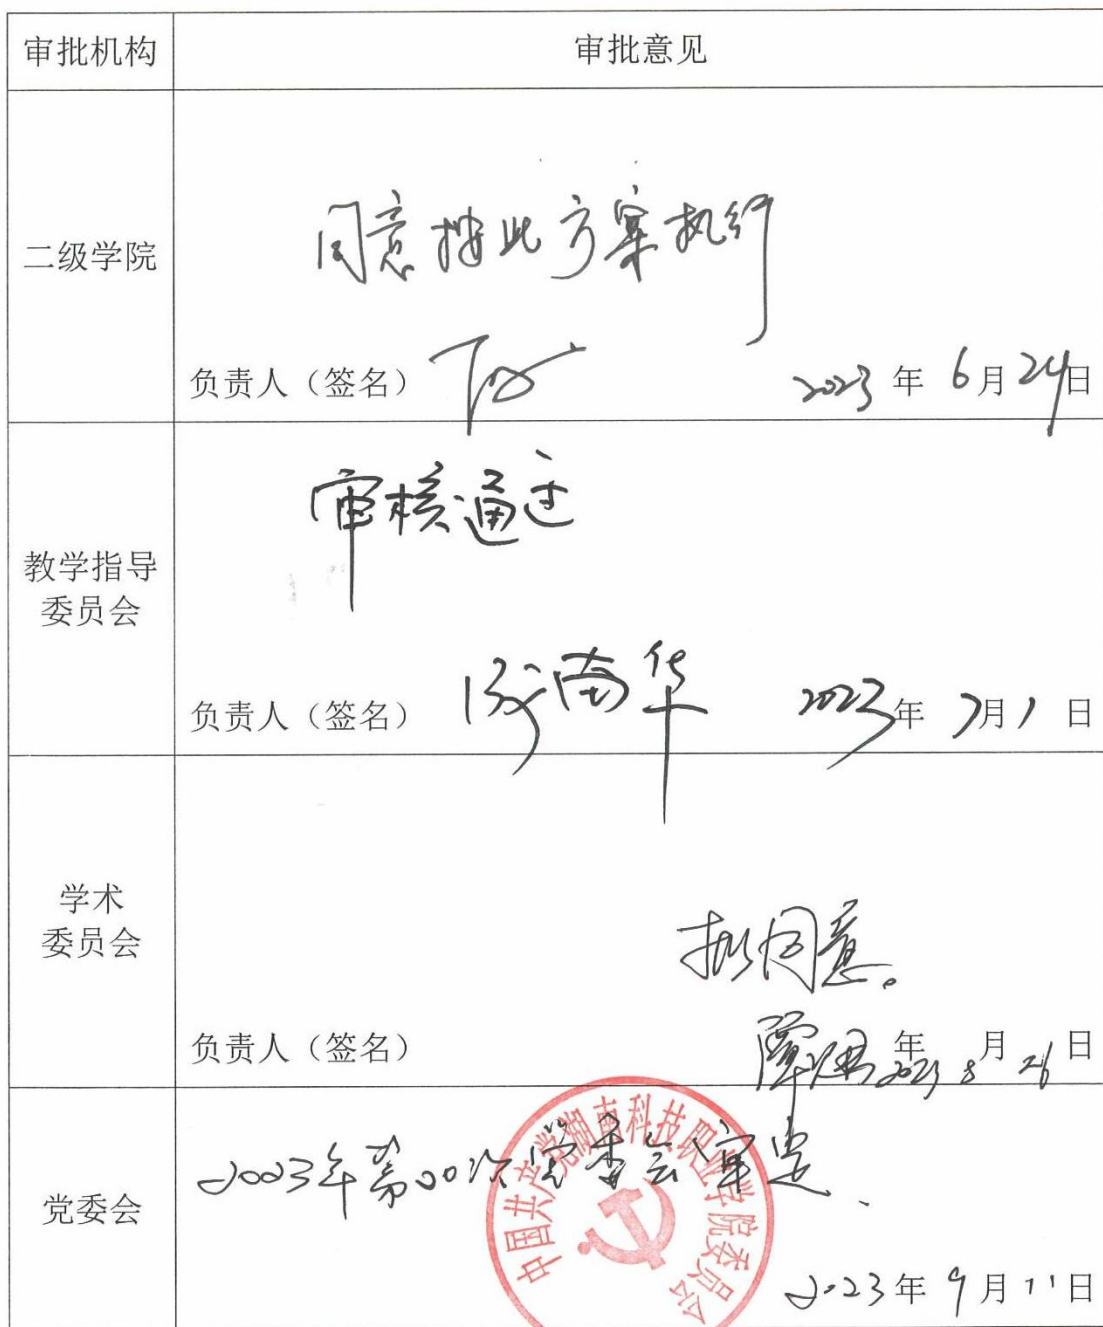 审批机构 审批意见
二级学院
同意按此方案执行
负责人（签名） 2023 年 6月24日
教学指导
委员会
审核通过
负责人（签名） 南华 2023年 7月1日
学术
委员会
拟同意。
负责人（签名） 年 月 日
覃 2023 8 26
党委会
2003年第20次党委会审定、
中国共产党湖南科技职业学院委员会
2023年9月11日